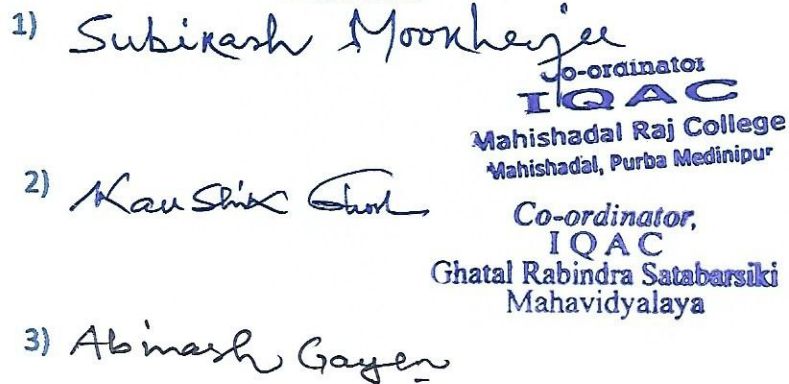 1) Subikash Mookherjee
Co-ordinator
IQAC
Mahishadal Raj College
Mahishadal, Purba Medinipur
2) Kaushik Ghosh
Co-ordinator,
IQAC
Ghatal Rabindra Satabarsiki
Mahavidyalaya
3) Abinash Gayen